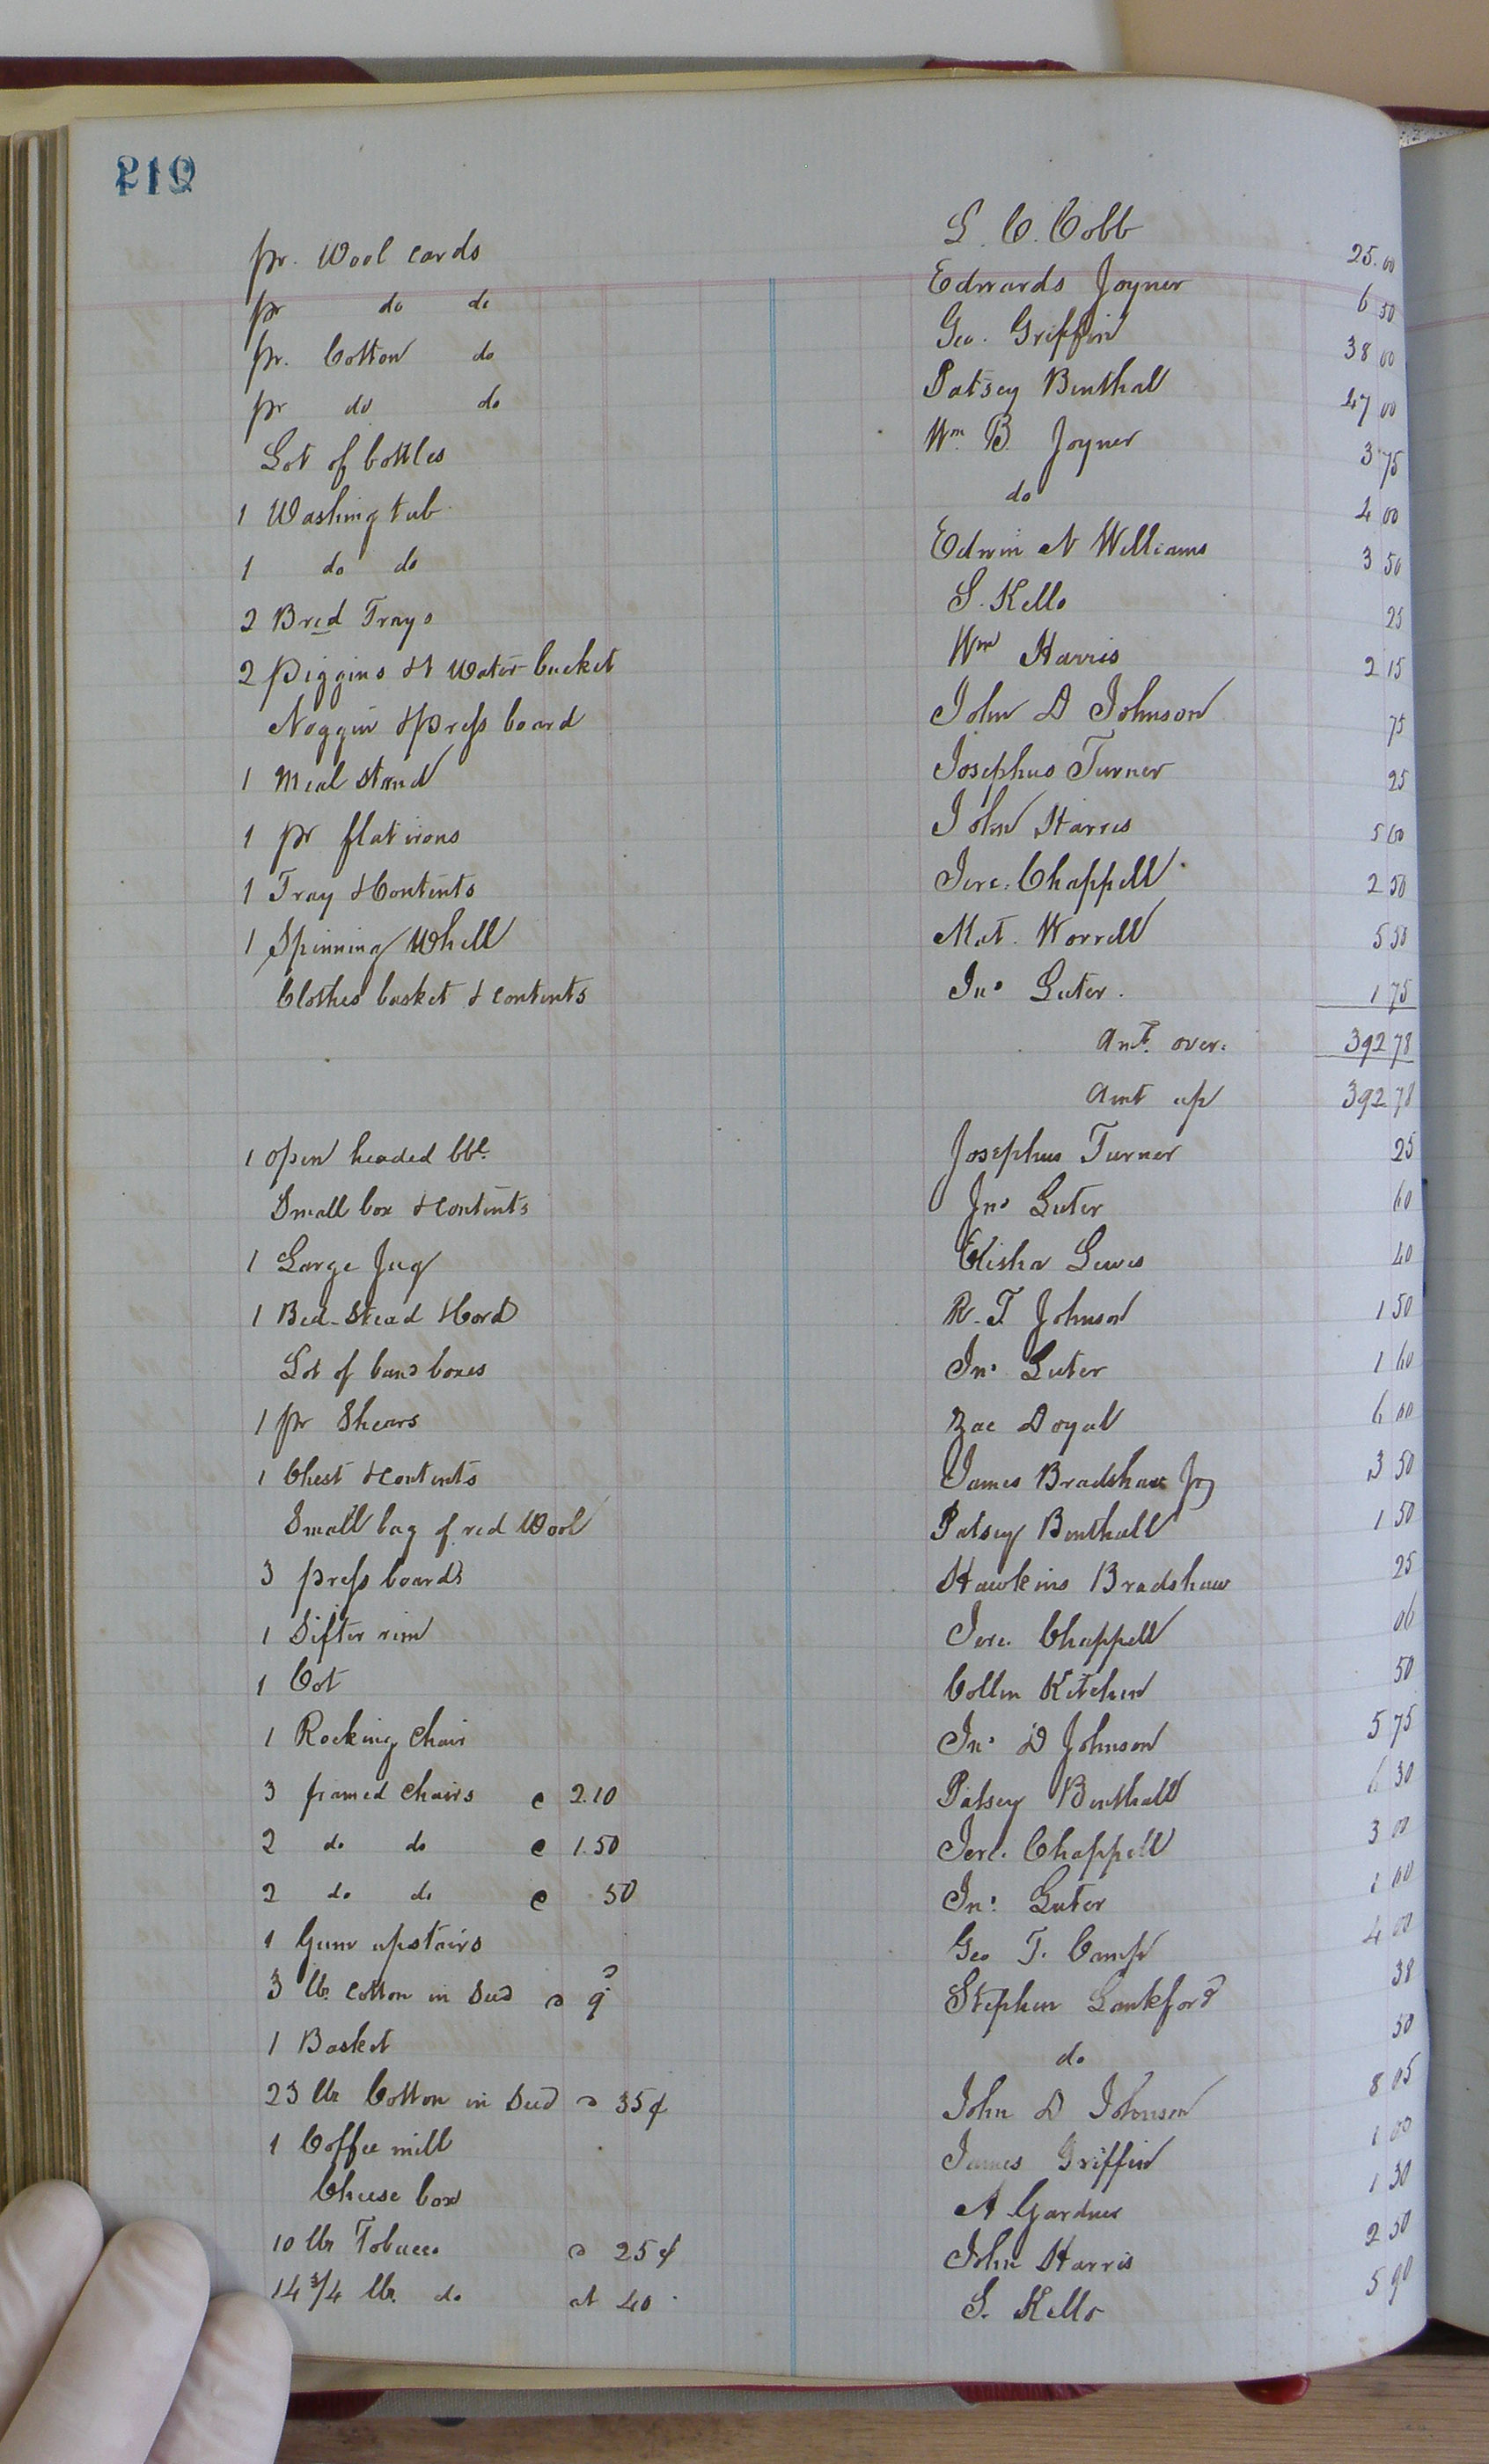 212
pr. Wool cards S. C. Cobb 25.00
pr do do Edwards Joyner 6 50
pr. Cotton do Geo. Griffin 38 00
pr do do Patsey Benthal 47 00
Lot of bottles Wm. B. Joyner 3 75
1 Washing tub do 4 00
1 do do Edwin N Williams 3 50
2 Bred Trays S. Kello 25
2 piggins & 1 Water-bucket Wm Harris 2 15
Noggin & press board John D Johnson 75
1 Meal Stand Josephus Turner 25
1 pr flat irons John Harris 5 60
1 Tray & Contents Jere. Chappell 2 50
1 Spinning Whell Mat. Worrell 5 50
Clothes basket & contents Jno Luter. 1 75
Amt. over. 392 78
Amt up 392 78
1 open headed bbl. Josephus Turner 25
Small box & contents Jno Luter 60
1 Large Jug Elisha Lewis 40
1 Bed-Stead & Cord R. T. Johnson 1 50
Lot of band boxes Jno Luter 1 60
1 pr Shears Zac Doyal 6 00
1 Chest & contents James Bradshaw Jr 3 50
Small bag of red Wool Patsey Benthall 1 50
3 press boards Hawkins Bradshaw 25
1 Sifter rim Jere. Chappell 06
1 Cot Collin Kitchen 50
1 Rocking Chair Jno D Johnson 5 75
3 framed chairs @ 2.10 Patsey Benthall 6 30
2 do do @ 1.50 Jere. Chappell 3 00
2 do do @ 50 Jno. Luter 1 00
1 Gum upstairs Geo T. Camp 4 00
3 lb. cotton in Seed @ 9 Stephen Lankford 38
1 Basket do 50
23 lb Cotton in Seed @ 35¢ John D Johnson 8 05
1 Coffee mill James Griffin 1 00
Cheese box A Gardner 1 30
10 lb Tobacco @ 25¢ John Harris 2 50
14 3/4 lb. do at 40 S. Kello 5 90